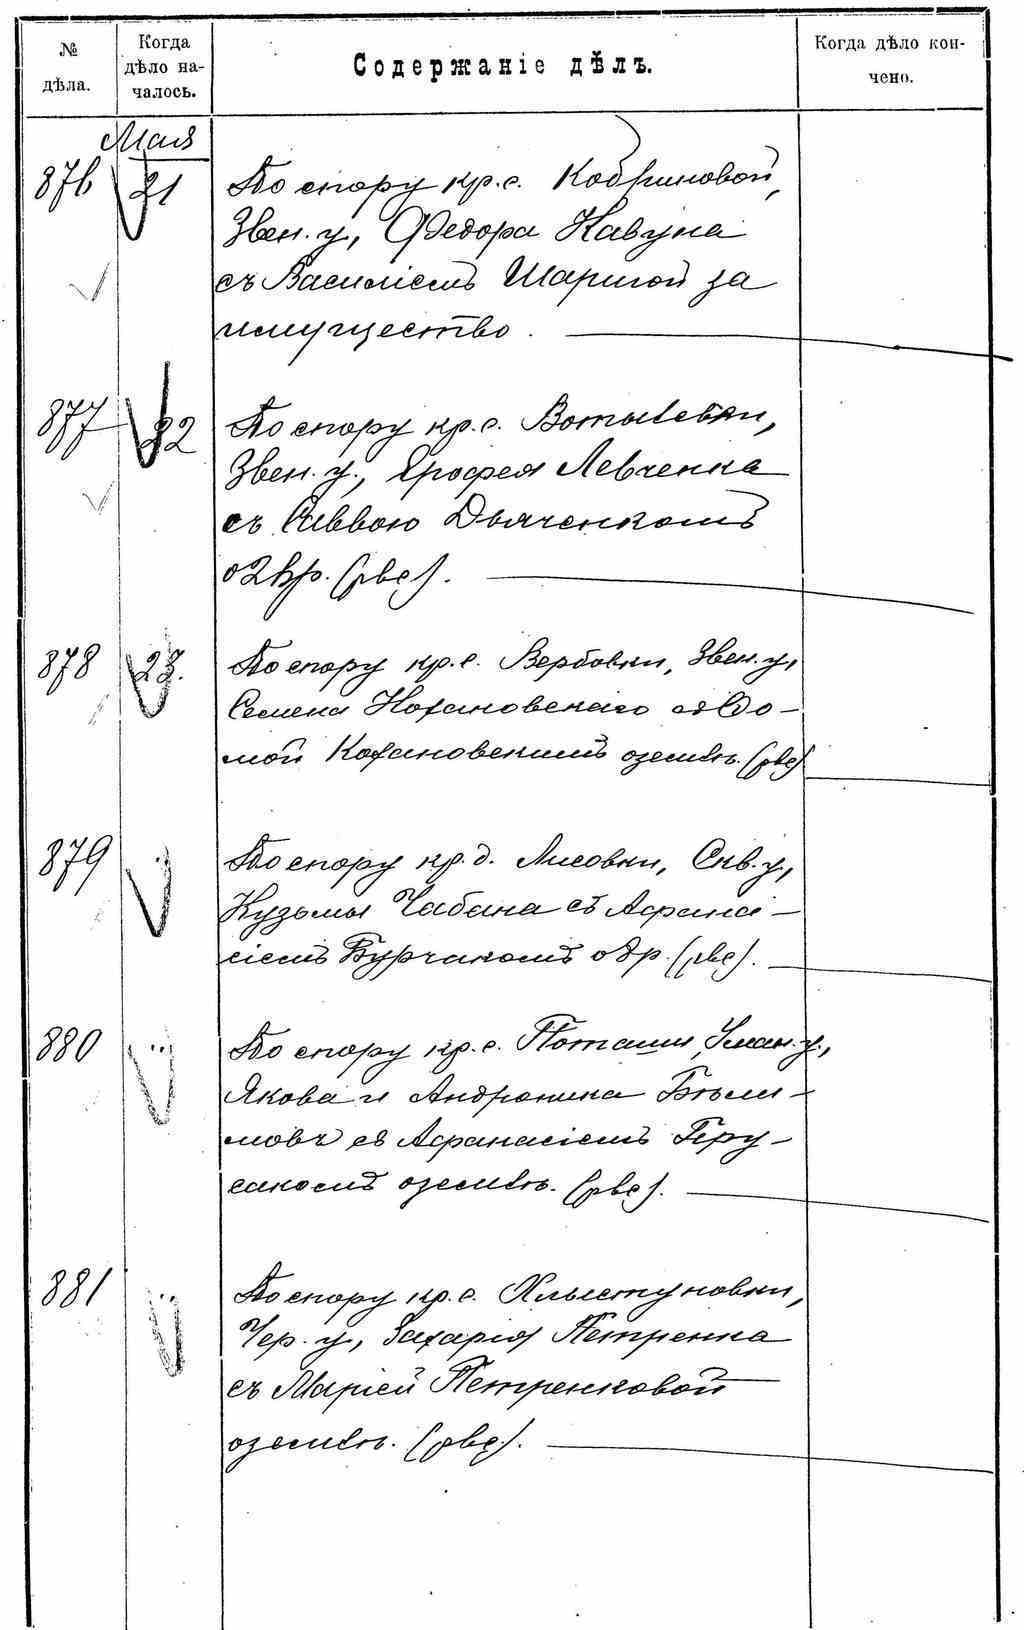 № дѣла.
Когда дѣло на-
чалось.
Содержаніе дѣлъ.
Когда дѣло кон-
чено.
Мая
876 21 По спору кр. с. Кобриновой,
Звен. у., Федора Кавуна
съ Василіемъ Шаригой за
имущество.
877 22 По спору кр. с. Вотылевки,
Звен. у., Ерофея Левченка
съ Саввою Дьяченкомъ
о 2 кр. (рвс).
878 23. По спору кр. с. Вербовки, Звен. у.,
Семена Кохановскаго съ Ѳо-
мой Кохановскимъ о землѣ. (рвс)
879 По спору кр. д. Лисовки, Скв. у.,
Кузьмы Чабана съ Афана-
сіемъ Бурчакомъ о др. (рвс).
880 По спору кр. с. Поташи, Уман. у.,
Якова и Андроника Бѣли-
мовъ съ Афанасіемъ Геру-
сакомъ о землѣ. (рвс).
881 По спору кр. с. Хлыстуновки,
Чер. у., Захарія Петренка
съ Маріей Петренковой
о землѣ. (рвс).